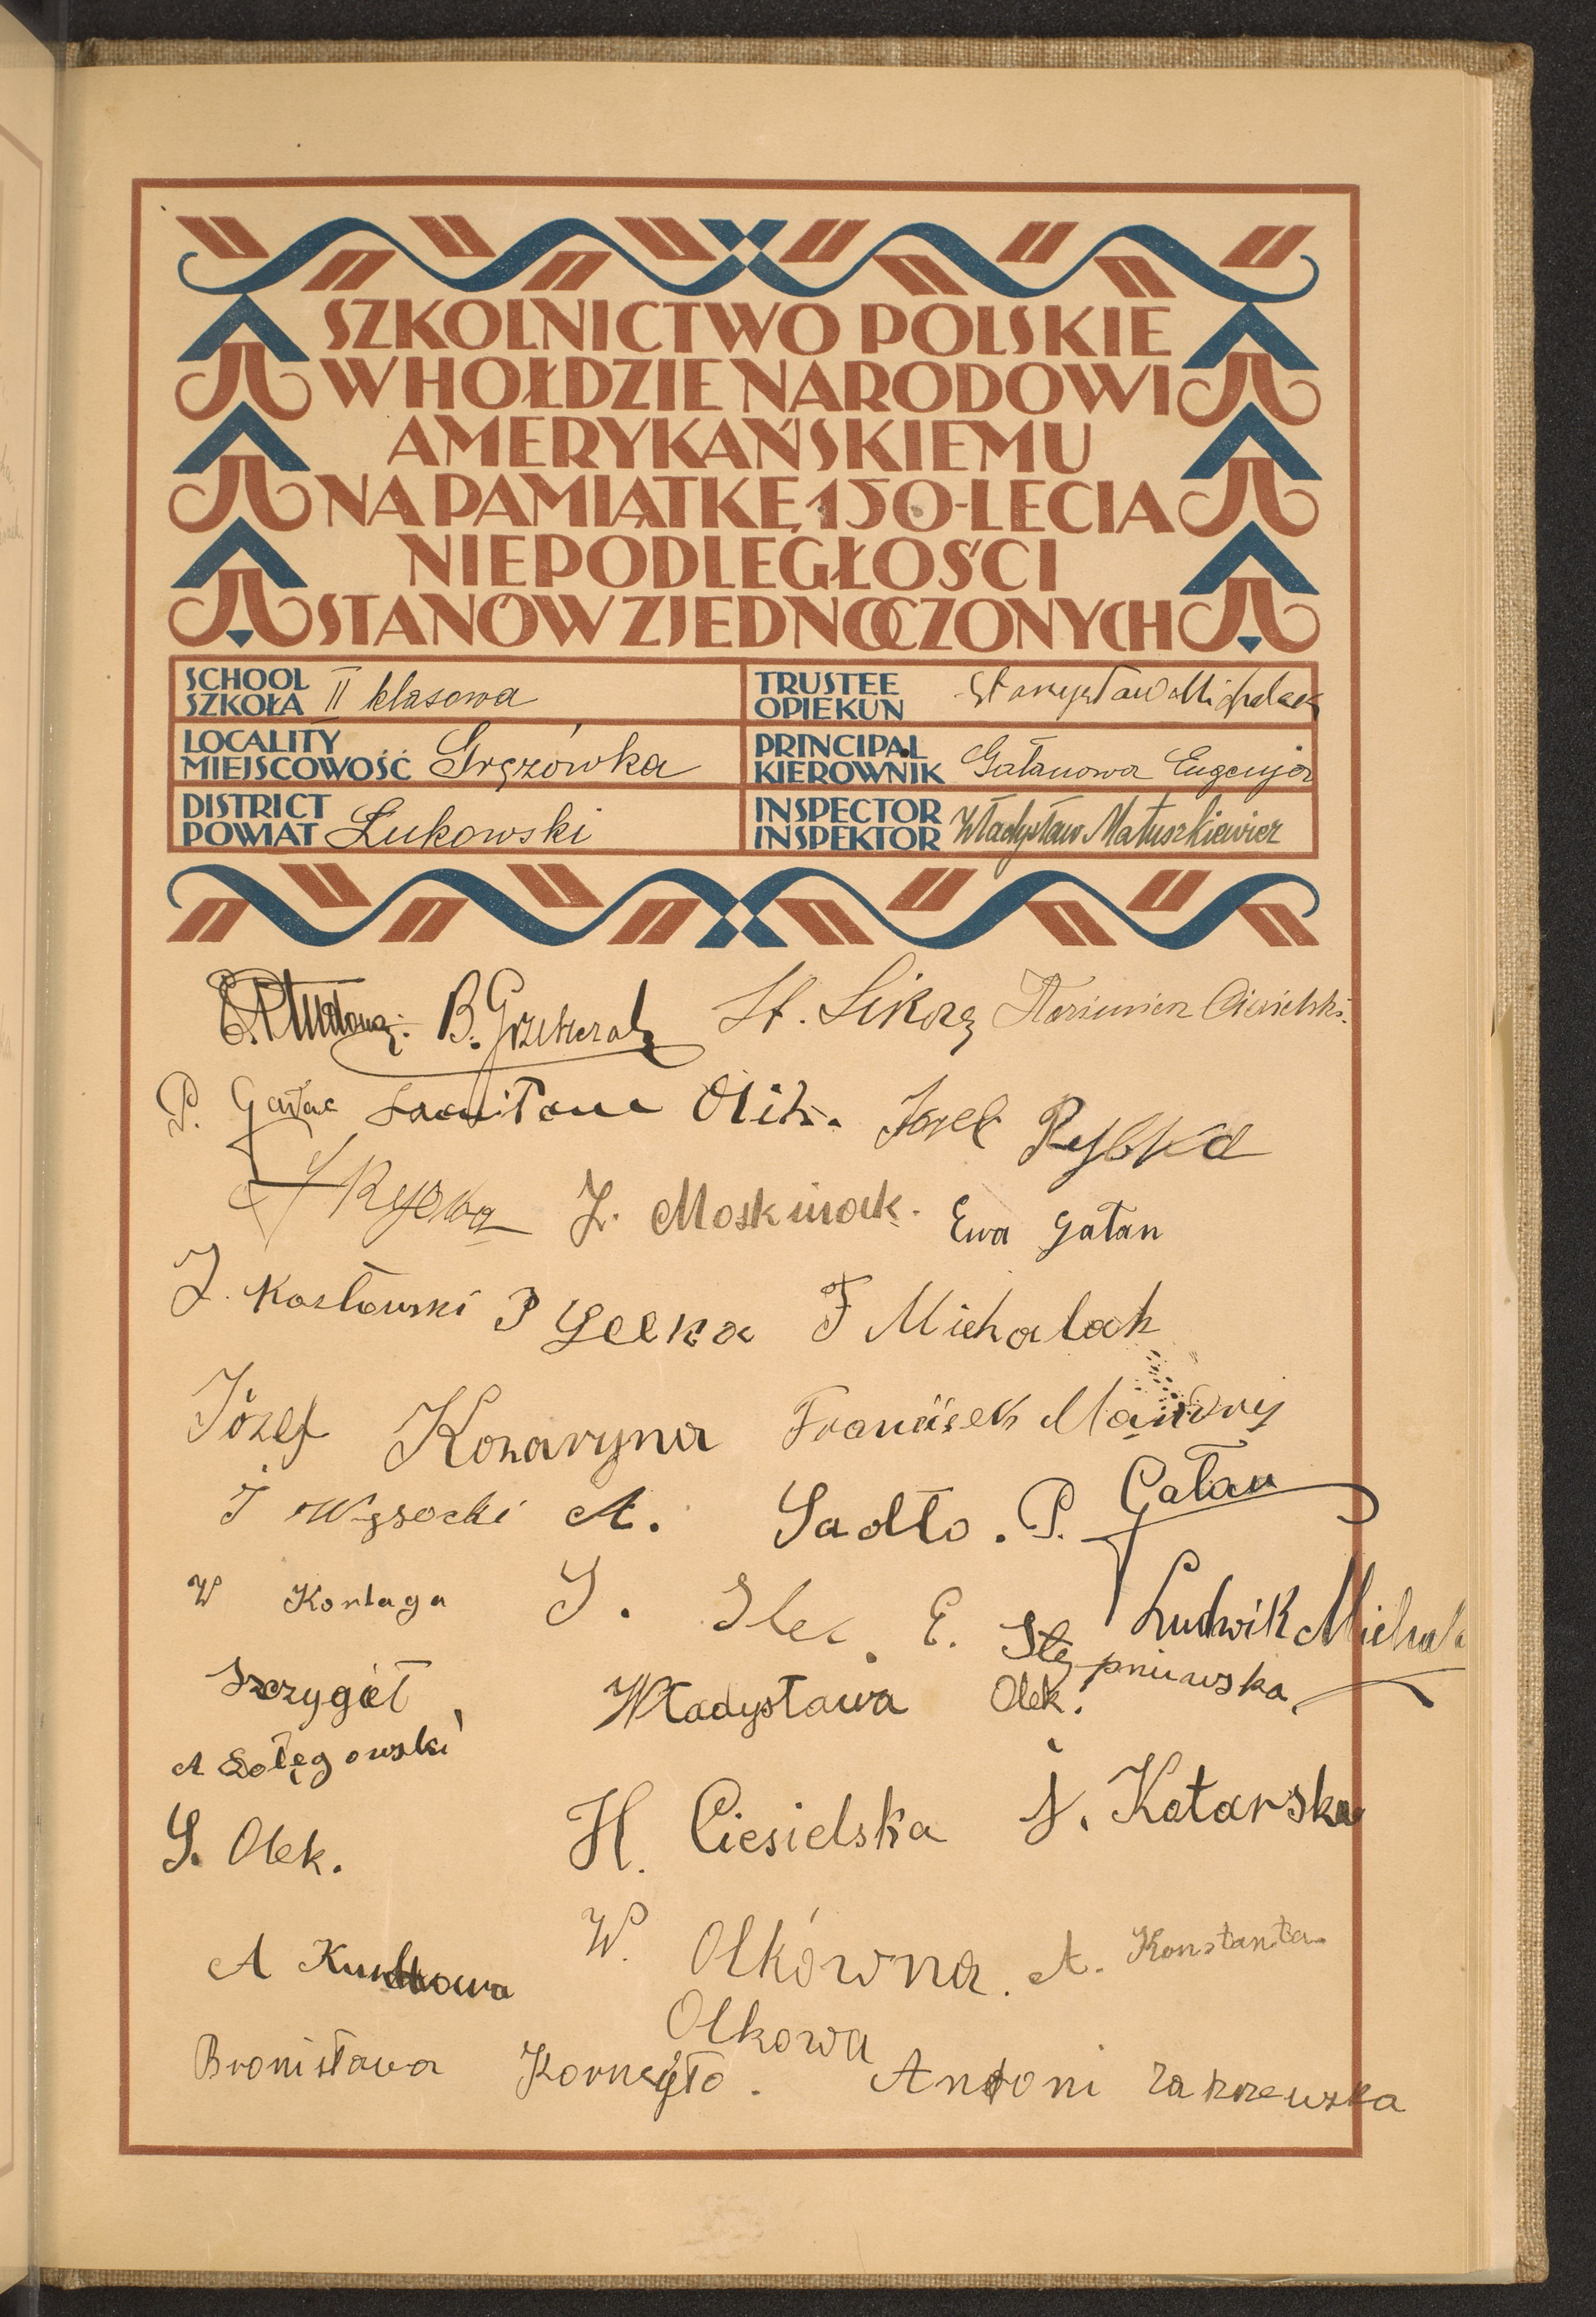 SZKOLNICTWO POLSKIE
W HOŁDZIE NARODOWI
AMERYKAŃSKIEMU
NA PAMIĄTKĘ 150-LECIA
NIEPODLEGŁOŚCI
STANÓW ZJEDNOCZONYCH
SCHOOL SZKOŁA II klasowa
TRUSTEE OPIEKUN Stanysław Michalak
LOCALITY MIEJSCOWOŚĆ Gręzówka
PRINCIPAL KIEROWNIK Gałanowa Eugenja
DISTRICT POWIAT Łukowski
INSPECTOR INSPEKTOR Władysław Matuszkiewicz
B. St. Sikorę Ciesielski
P. Olek. Józef Rybka
Z. Moskwiak. Ewa Gałan
J. Kozłowski P Gelka F Michalak
Józef Franciszek Mańdry
J Wysocki A. Sadło. P. Gałan
W Kontaga J. Ilec. E. Stępniewska Ludwik
Szczygieł Władysława Olek.
A Sołęgowski
S. Olek. H. Ciesielska J. Kotarska
A W. Olkówna. A. Konstanta
Olkowa
Bronisława Kornęyło. Antoni Zakrzewska